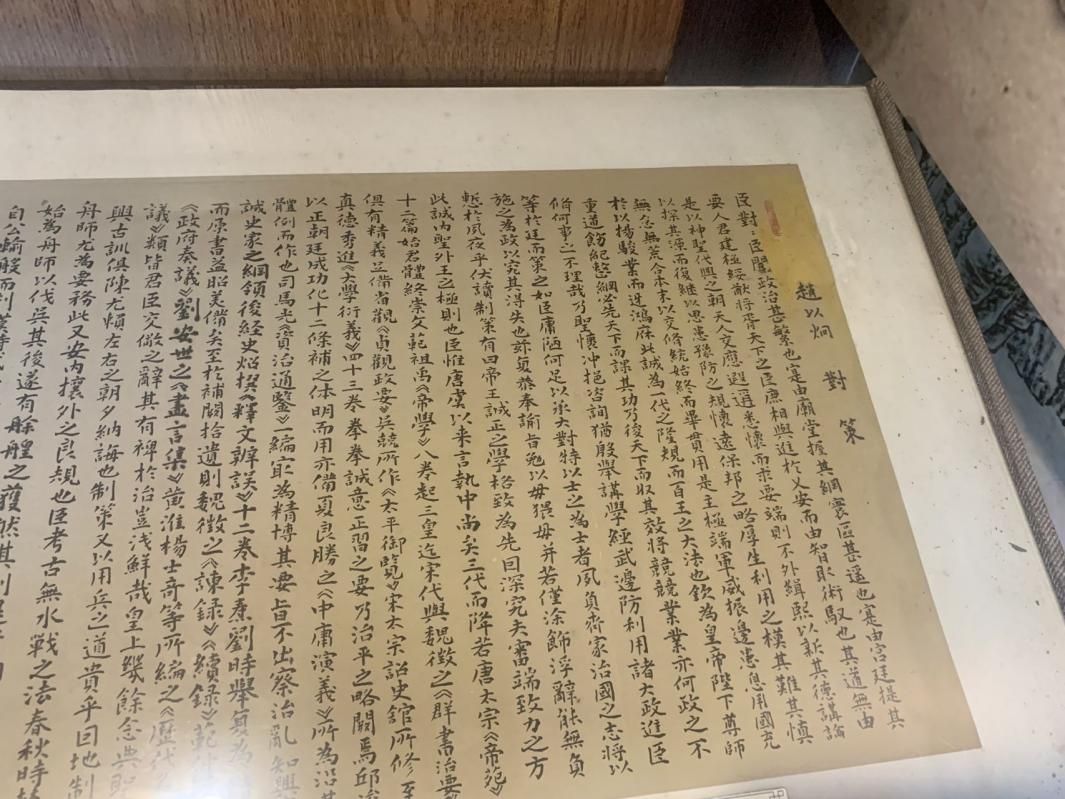 趙以炯 對 策
臣對：臣聞政治甚繁也寔由廟堂握其綱寰區甚遥也寔由宮廷提其
要人君建極綏猷將胥天下之臣庶相與進於乂安而由智取術馭也其道無由
是以神聖代興之朝天人交應遐邇悉懷而求要端則不外緝熙以新其德講論
以探其源而復継以思患豫防之規懷遠保邦之略厚生利用之模其難其慎
無怠無荒合本末以交修綜始終而畢貫用是主極端軍威振邊患息用國充
於以揚駿業而迓鴻庥此誠為一代之隆規而百王之大法也欽為皇帝陛下尊師
重道飭紀整綱必先天下而課其功乃後天下而收其效將兢兢業業亦何政之不
脩何事之不理哉乃聖懷冲挹咨詢猶殷舉講學經武邊防利用諸大政進臣
等於廷而策之如臣庸陋何足以承大對特以士之為士者夙負齊家治國之志將以
施之為政以究其得失也茲負恭奉諭旨勉以毋猥毋并若僅涂飾浮辭能無負
慙於夙夜乎伏讀制策有曰帝王誠正之學格致為先因深究夫審端致力之方
此誠內聖外王之極則也臣惟唐虞以来言執中尚矣三代而降若唐太宗《帝範》
十二篇始君體終崇文範祖禹《帝學》八卷起三皇迄宋代與魏徵之《群書治要》
俱有精義立備省觀《貞觀政要》吳兢所作《太平御覽》宋太宗詔史館所修至
真德秀進《大學衍義》四十三卷拳拳誠意正習之要乃治平之略闕焉邱濬
以正朝廷成功化十二條補之体明而用亦備夏良勝之《中庸演義》所為沿其
體例而作也司馬光《資治通鑒》一編寂為精博其要旨不出察治亂知興
誠史家之綱領後経史炤撰《釋文辨誤》十二卷李燾劉時舉复為
而原書益昭美備矣至於補闕拾遺則魏徵之《諫錄》《續錄》範仲
《政府奏議》劉安世之《盡言集》黃淮楊士奇等所編之《歷代
議》類皆君臣交儆之辭其有裨於治豈浅鮮哉皇上幾餘念典
興古訓俱陳尤頼左右之朝夕納誨也制策又以用兵之道貴乎因地制
舟師尤為要務此又安內攘外之良規也臣考古無水戰之法春秋時
始為舟師以伐吳其後遂有艅艎之獲然其制
自公輸般而剏漢時